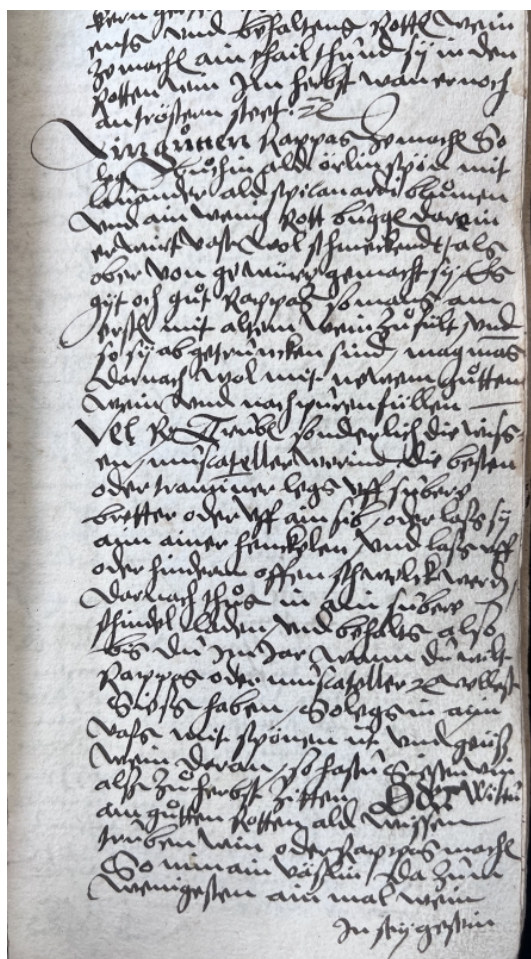 ents vnd behaltens Rottl wein
zemachl ain thail thund sy in den
Rotten wein Im herbst wan er noch
an tröstern steet
Ain guten Rappas zemachl So
leg buochin ald örlin spön mit
lauander ald spicanardi bluomen
vnd ain wenig Rott buggl darein
er wirt vast wol schmeckendt als
ober von gewürtz gemacht sy Es
gyt och guot Rappas so mans am
ersth mit altem wein zuo fült vnd
so sy ab getruncken sind mag mans
darnach wol mit newem guotten
wein vnd nach puren füllen
Vel R Trubl sonderlich die wiss
en muscateller werind die besten
oder traminer legs vff subere
bretter oder vff ain sib oder lass sy
ann ainer henckelen vnd lass vff
oder hinderm offen schwelck werd
darnach thuos in ain subere
schindel laden vnd behalts also
bis du Im Jar wann du wilt
Rappas oder muscateller wellest
Süess haben So legs in ain
vass mit spönen vnd geüß
wein daran so hastu Süessen win
als zuo herbst zitten Oder wiltu
ain guotten Rotten ald wissen
truben win oder Rappas machl
So nim ain väslin da zum
wenigesten ain mal wein
In sey gesein